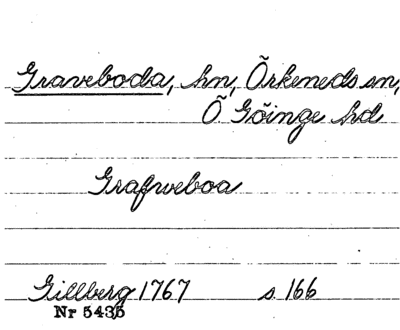 Graveboda, hn, Örkeneds sn,
Ö Göinge hd
Grafweboa
Gillberg 1767 s 166
Nr 5435